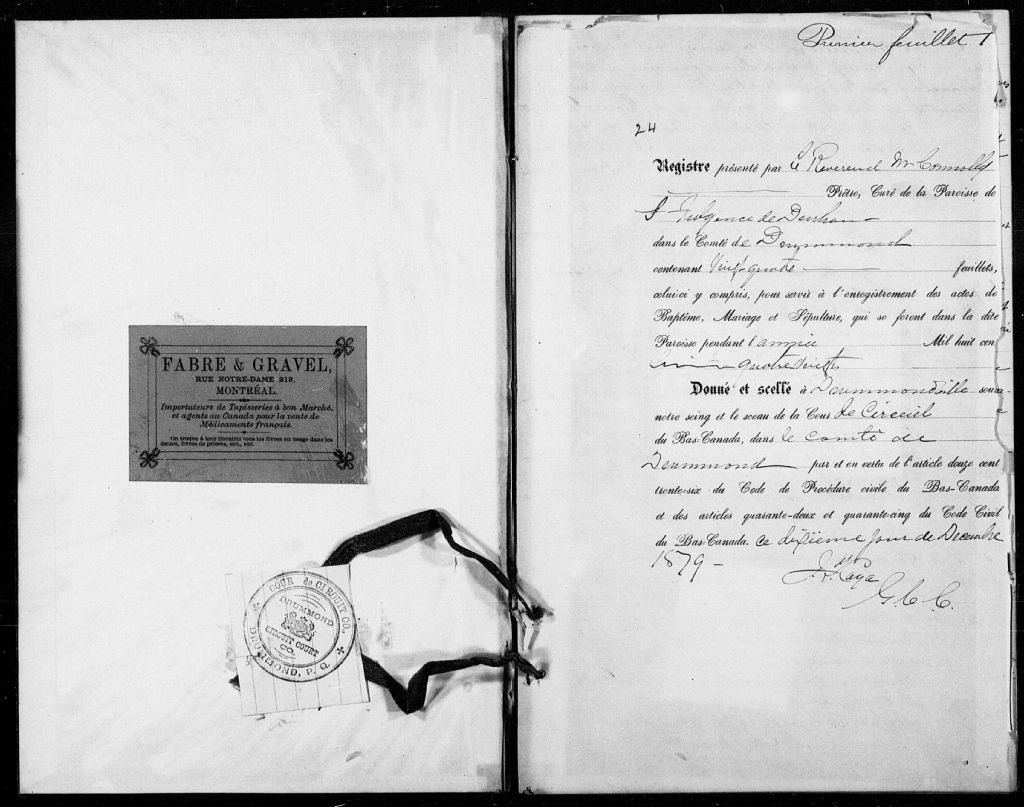 FABRE & GRAVEL,
RUE NOTRE-DAME 219,
MONTRÉAL.
Importateurs de Tapisseries à bon Marché,
et agents au Canada pour la vente de
Médicaments français.
On trouve à leur librairie tous les livres en usage dans les
écoles, livres de prières, etc., etc.
COUR de CIRCUIT CO. de DRUMMOND, P. Q.
DRUMMOND
CIRCUIT COURT
CO.
Premier feuillet 1
24
Registre présenté par Le Reverend Mr Connolly
Prêtre, Curé de la Paroisse de
St Fulgence de Durham
dans le Comté de Drummond
contenant Vingt quatre feuillets,
celui-ci y compris, pour servir à l'enregistrement des actes de
Baptême, Mariage et Sépulture, qui se feront dans la dite
Paroisse pendant l'année Mil huit cent
quatre vingt
Donné et scellé à Drummondville sous
notre seing et le sceau de la Cour de Circuit
du Bas-Canada, dans le comté de
Drummond par et en vertu de l'article douze cent
trente-six du Code de Procédure civile du Bas-Canada
et des articles quarante-deux et quarante-cinq du Code Civil
du Bas-Canada. ce dixième jour de Decembre
1879 -
G. C. C.